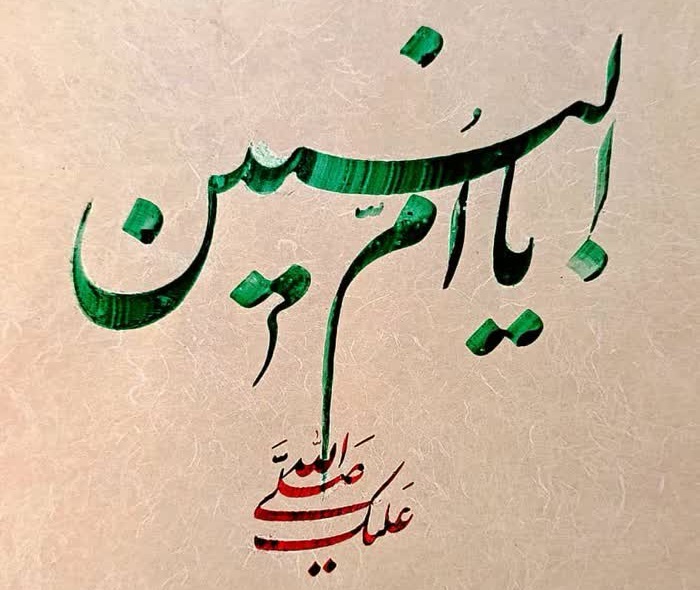 یا اُمّ البنین
صَلَّی الله
عَلیک